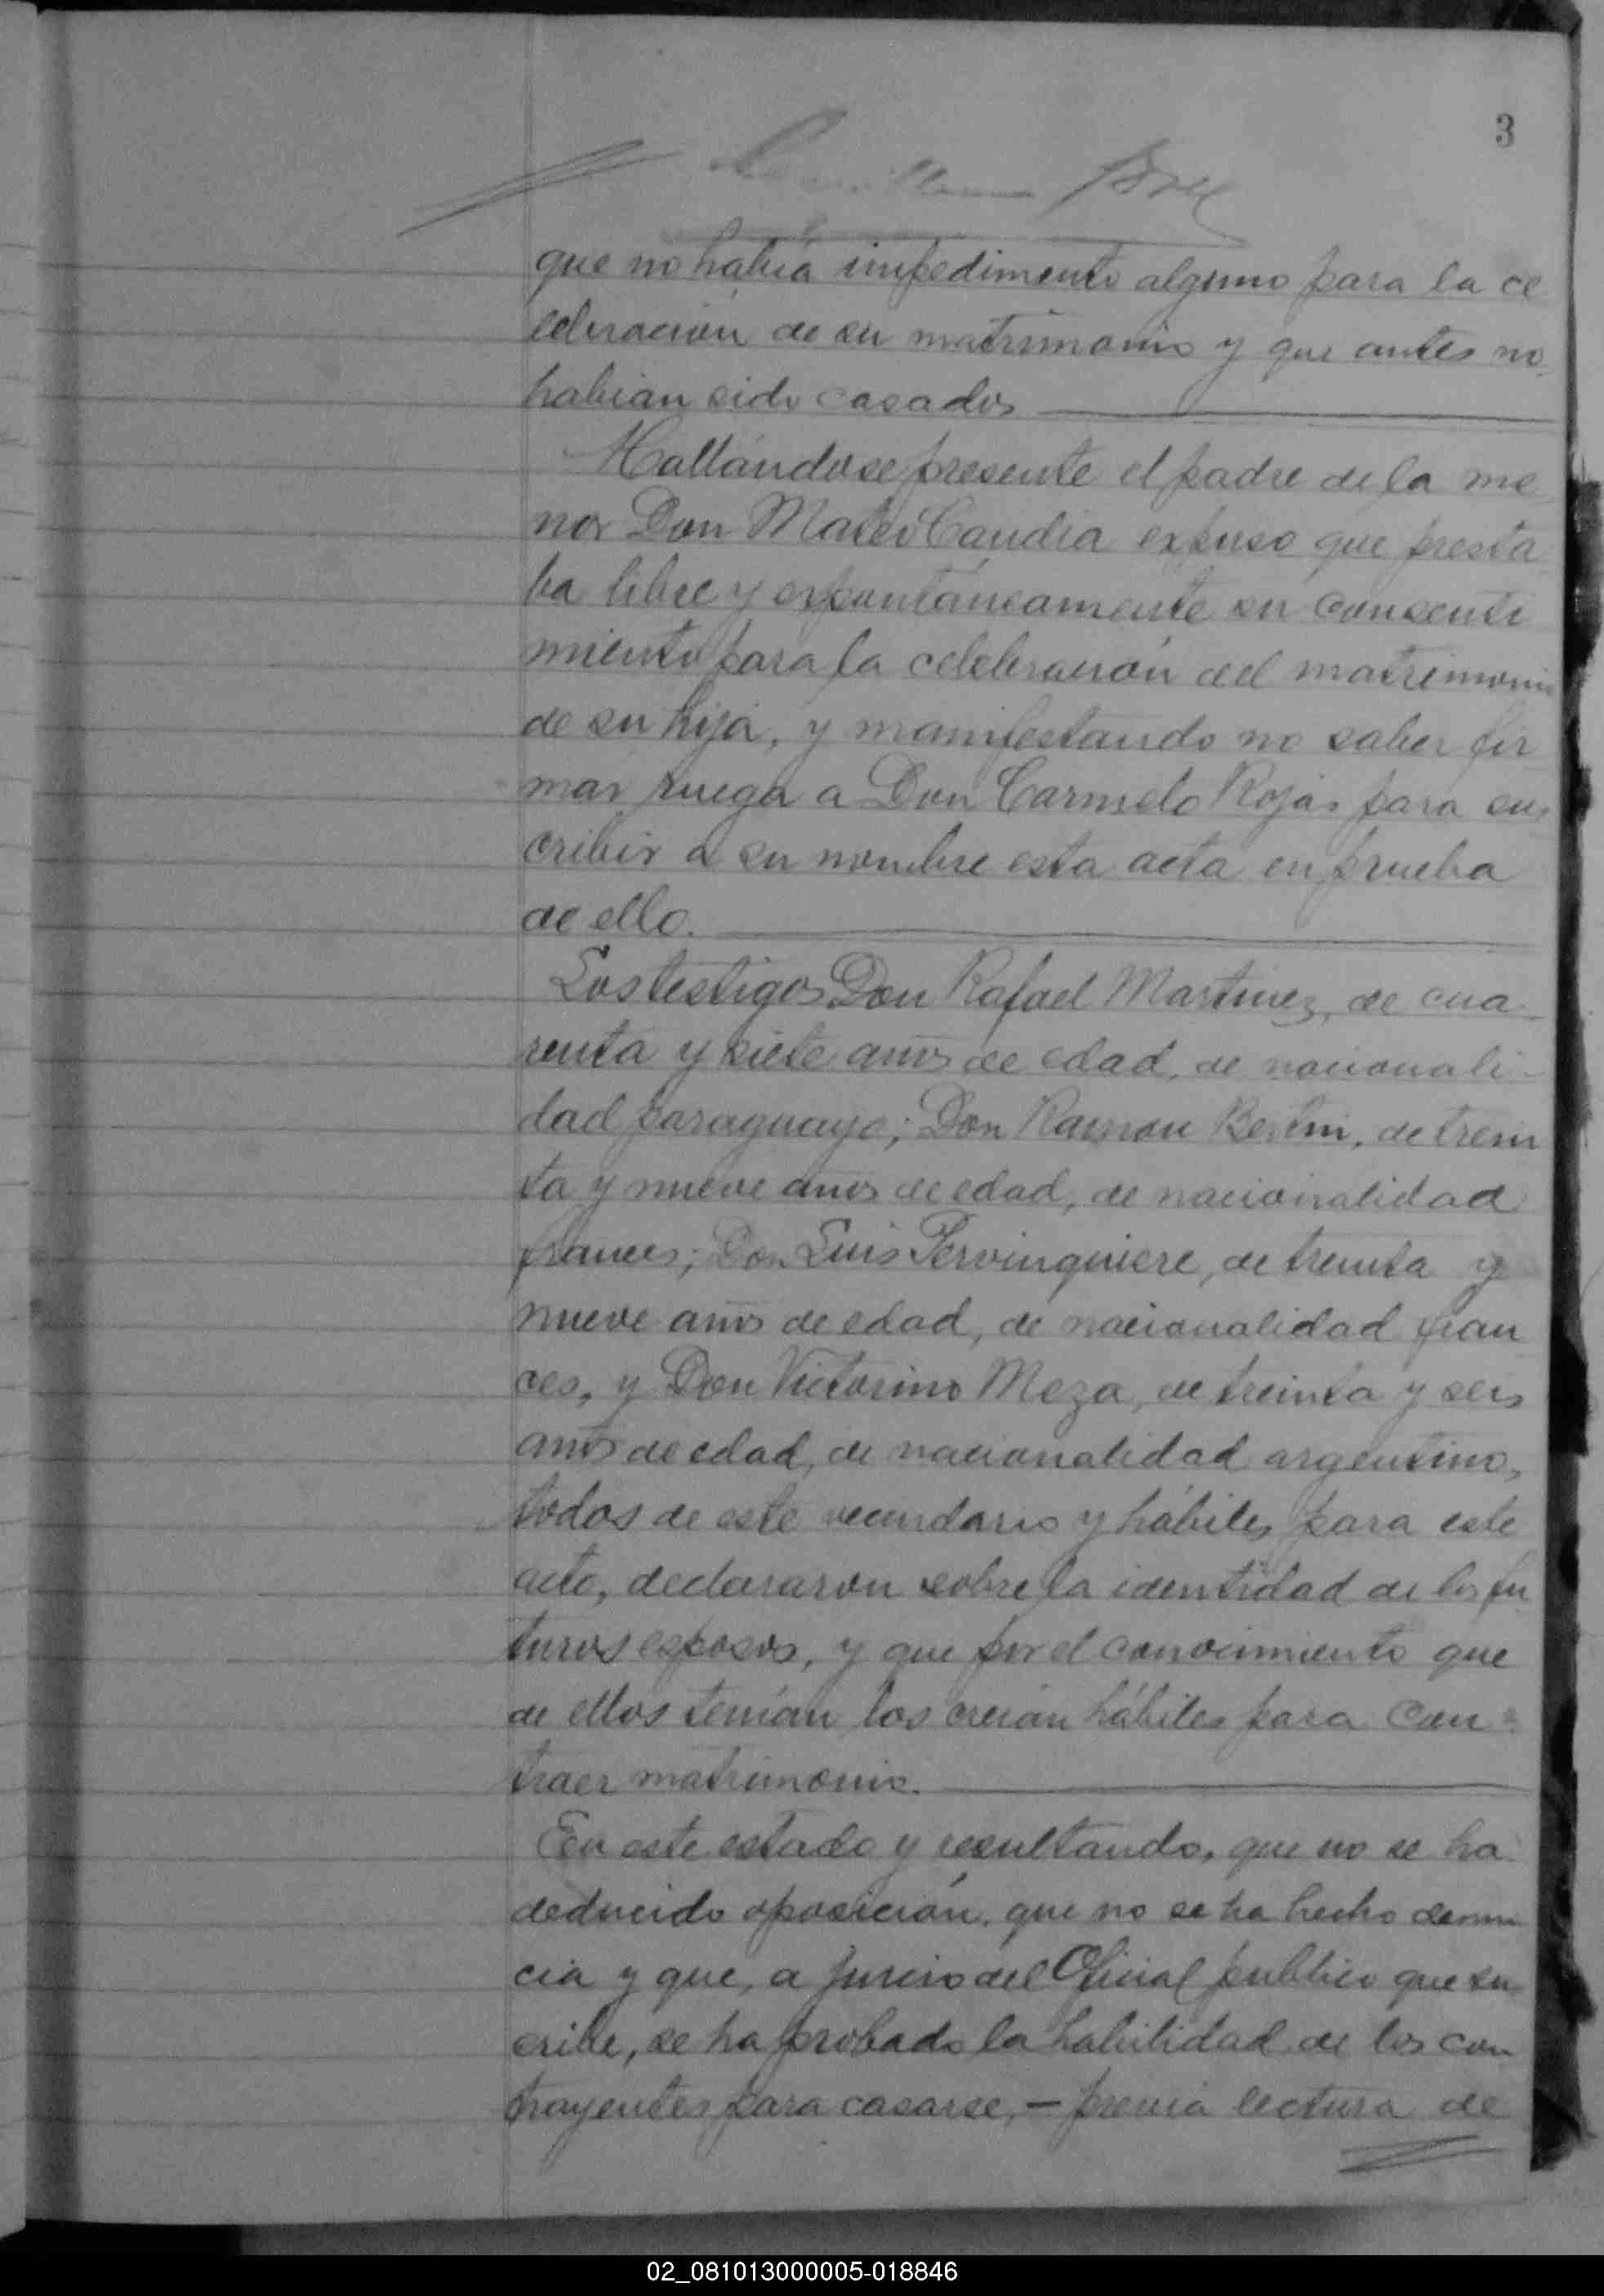 3
que no había impedimento alguno para la ce
lebración de su matrimonio y que antes no
habian sido casados
Hallándose presente el padre de la me
nor Don Mateo Candia expuso que presta
ba libre y expontáneamente su consenti
miento para la celebración del matrimonio
de su hija, y manifestando no saber fir
mar ruega a Don Carmelo Rojas para sus
cribir a su nombre esta acta en prueba
de ello.
Los testigos Don Rafael Martinez, de cua
renta y siete años de edad, de nacionali-
dad paraguayo; Don Ramon Bertin, de trein
ta y nueve años de edad, de nacionalidad
frances; Don Luis Pervinquiere, de treinta y
nueve años de edad, de nacionalidad fran
ces, y Don Victorino Meza, de treinta y seis
años de edad, de nacionalidad argentino,
todos de este vecindario y hábiles para este
acto, declararon sobre la identidad de los fu
turos esposos, y que por el conocimiento que
de ellos tenían los creian hábiles para con-
traer matrimonio.
En este estado y resultando, que no se ha
deducido oposición, que no se ha hecho denun
cia y que, a juicio del Oficial público que su
cribe, se ha probado la habilidad de los con
trayentes para casarse, — previa lectura de
02_081013000005-018846